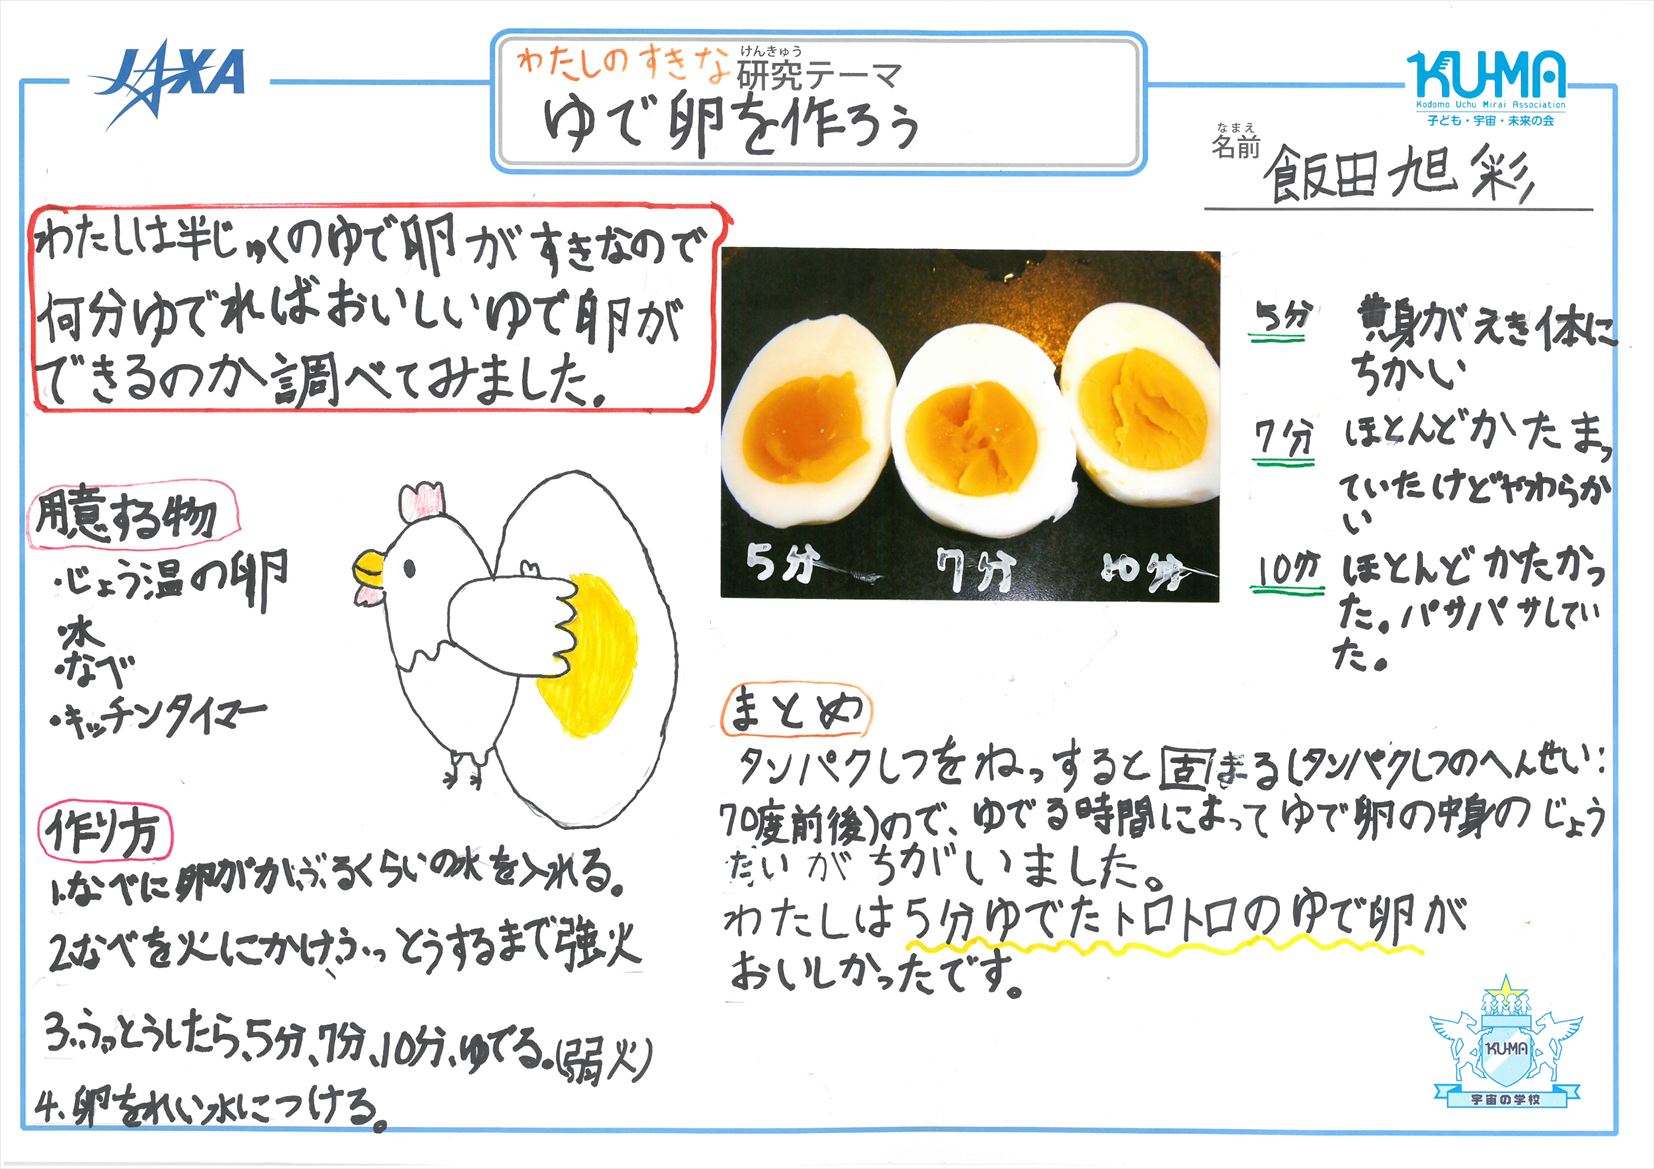 JAXA
わたしのすきな研究テーマ
けんきゅう
ゆで卵を作ろう
KU-MA
Kodomo Uchu Mirai Association
子ども・宇宙・未来の会
なまえ
名前 飯田旭彩
わたしは半じゅくのゆで卵がすきなので
何分ゆでればおいしいゆで卵が
できるのか調べてみました。
用意する物
・じょう温の卵
・水
・なべ
・キッチンタイマー
作り方
1.なべに卵がかぶるくらいの水を入れる。
2.なべを火にかけ、ふっとうするまで強火
3.ふっとうしたら、5分、7分、10分、ゆでる。(弱火)
4、卵をれい水につける。
5分 7分 10分
5分 黄身がえき体に
ちかい
7分 ほとんどかたまっ
ていたけどやわらか
い
10分 ほとんどかたかっ
た。パサパサしてい
た。
まとめ
タンパクしつをねっすると固まる(タンパクしつのへんせい:
70度前後)ので、ゆでる時間によってゆで卵の中身のじょう
だいがちがいました。
わたしは5分ゆでたトロトロのゆで卵が
おいしかったです。
KU-MA
宇宙の学校